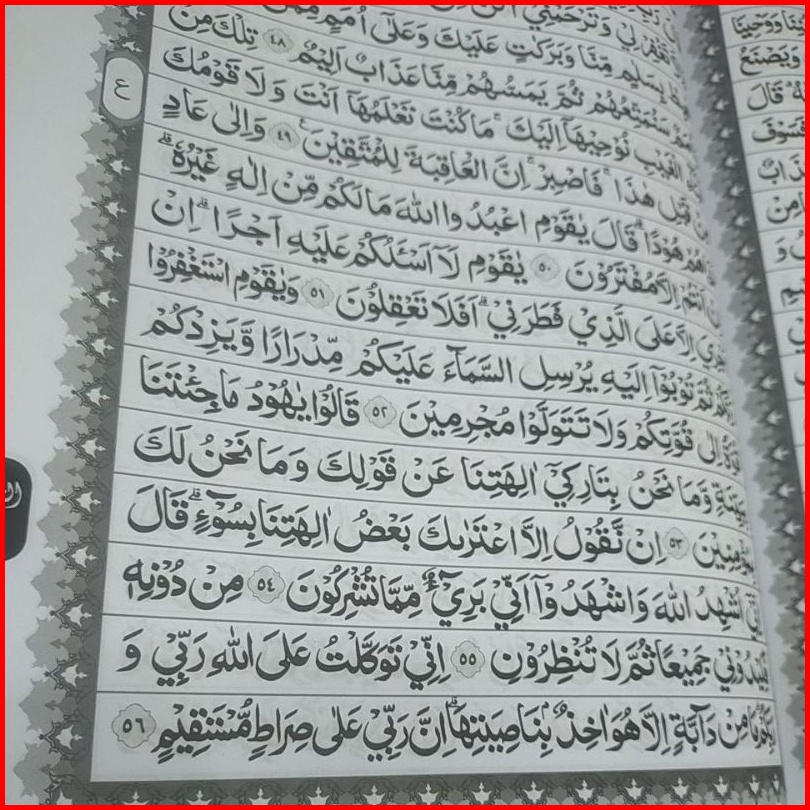 تَغْفِرْ لِيْ وَتَرْحَمْنِيْٓ
بِسَلٰمٍ مِّنَّا وَبَرَكٰتٍ عَلَيْكَ وَعَلٰٓى اُمَمٍ مِّمَّنْ
سَنُمَتِّعُهُمْ ثُمَّ يَمَسُّهُمْ مِّنَّا عَذَابٌ اَلِيْمٌ ٤٨ تِلْكَ مِنْ
الْغَيْبِ نُوْحِيْهَآ اِلَيْكَ ۚ مَا كُنْتَ تَعْلَمُهَآ اَنْتَ وَلَا قَوْمُكَ
قَبْلِ هٰذَا ۛ فَاصْبِرْ ۛ اِنَّ الْعَاقِبَةَ لِلْمُتَّقِيْنَ ٤٩ وَاِلٰى عَادٍ
هُوْدًا ۗ قَالَ يٰقَوْمِ اعْبُدُوا اللّٰهَ مَا لَكُمْ مِّنْ اِلٰهٍ غَيْرُهٗ ۗ
اَنْتُمْ اِلَّا مُفْتَرُوْنَ ٥٠ يٰقَوْمِ لَآ اَسْـَٔلُكُمْ عَلَيْهِ اَجْرًا ۗ اِنْ
اِلَّا عَلَى الَّذِيْ فَطَرَنِيْ ۗ اَفَلَا تَعْقِلُوْنَ ٥١ وَيٰقَوْمِ اسْتَغْفِرُوْا
ثُمَّ تُوْبُوْٓا اِلَيْهِ يُرْسِلِ السَّمَاۤءَ عَلَيْكُمْ مِّدْرَارًا وَّيَزِدْكُمْ
اِلٰى قُوَّتِكُمْ وَلَا تَتَوَلَّوْا مُجْرِمِيْنَ ٥٢ قَالُوْا يٰهُوْدُ مَا جِئْتَنَا
وَّمَا نَحْنُ بِتَارِكِيْٓ اٰلِهَتِنَا عَنْ قَوْلِكَ وَمَا نَحْنُ لَكَ
٥٣ اِنْ نَّقُوْلُ اِلَّا اعْتَرٰىكَ بَعْضُ اٰلِهَتِنَا بِسُوْۤءٍ ۗ قَالَ
اُشْهِدُ اللّٰهَ وَاشْهَدُوْٓا اَنِّيْ بَرِيْۤءٌ مِّمَّا تُشْرِكُوْنَ ٥٤ مِنْ دُوْنِهٖ
فَكِيْدُوْنِيْ جَمِيْعًا ثُمَّ لَا تُنْظِرُوْنِ ٥٥ اِنِّيْ تَوَكَّلْتُ عَلَى اللّٰهِ رَبِّيْ وَ
مَا مِنْ دَاۤبَّةٍ اِلَّا هُوَ اٰخِذٌۢ بِنَاصِيَتِهَا ۗ اِنَّ رَبِّيْ عَلٰى صِرَاطٍ مُّسْتَقِيْمٍ ٥٦
ع